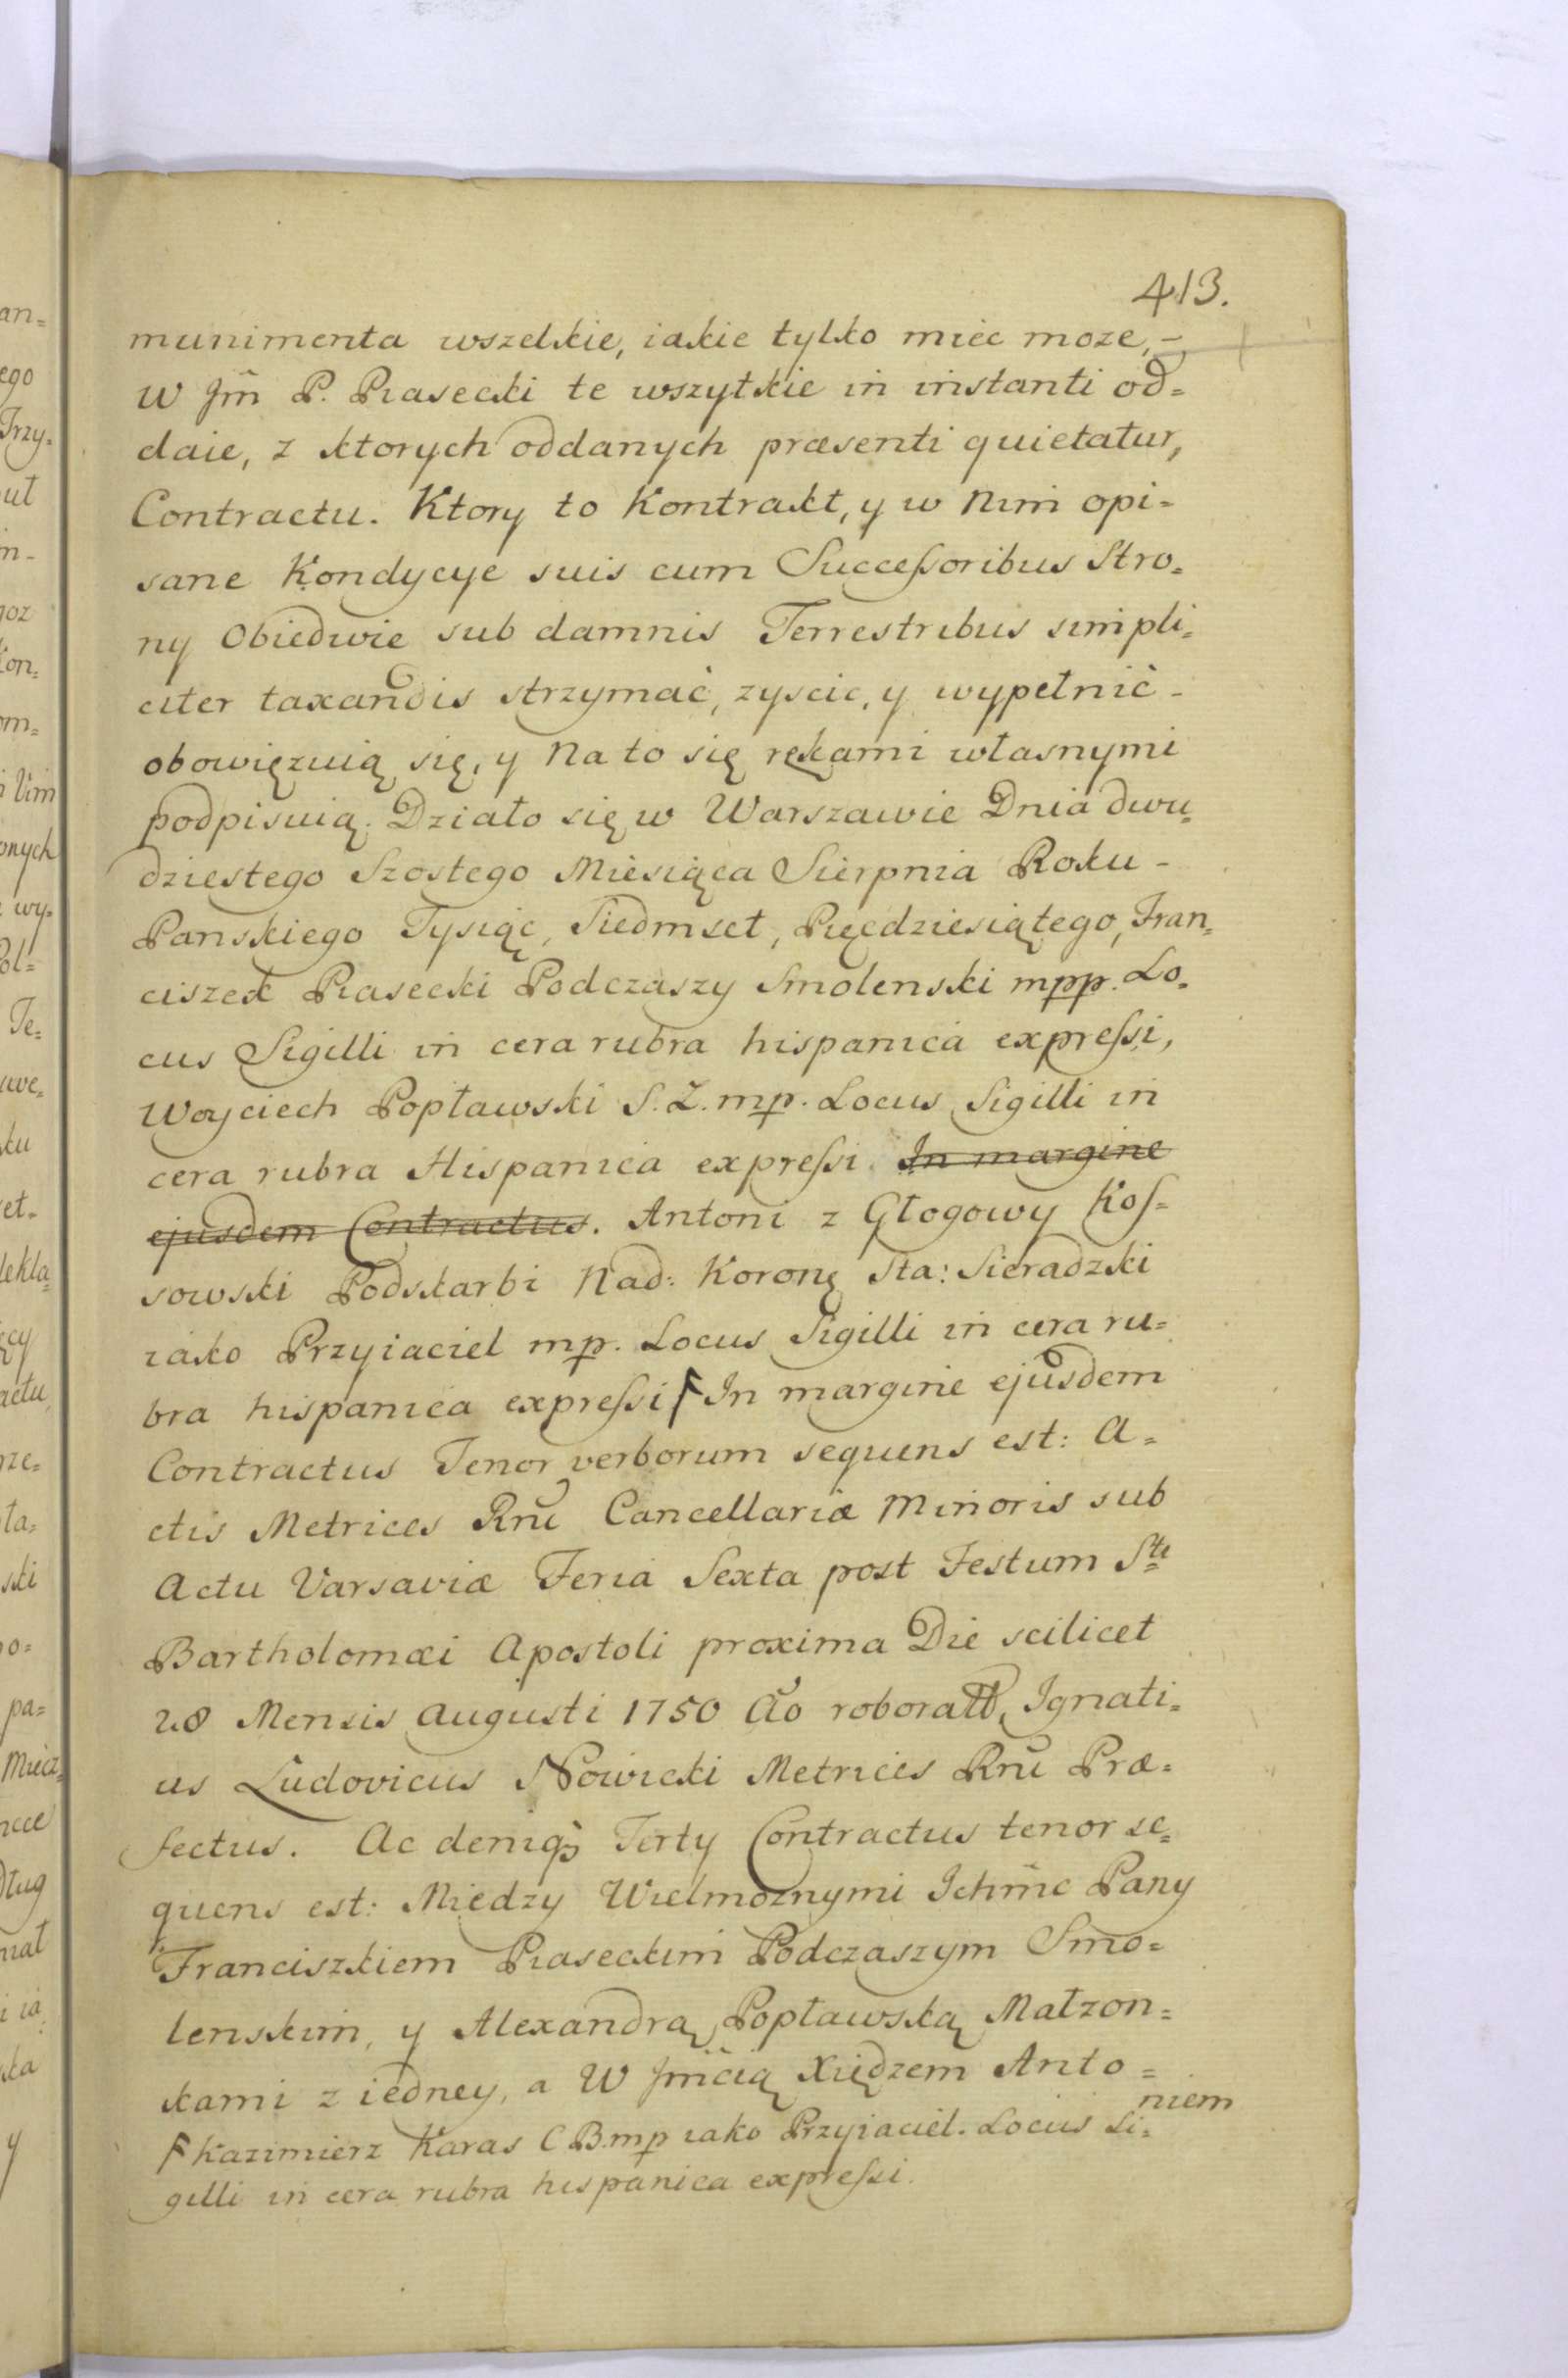 413.
munimenta wszelkie, iakie tylko miec moze, -
W Jm̃ P. Piasecki te wszytkie in instanti od=
daie, z ktorych oddanych præsenti quietatur,
Contractu. Ktory to Kontrakt, y w Nim opi=
sane Kondycye suis cum Succeſsoribus Stro=
ny Obiedwie sub damnis Terrestribus simpli=
citer taxandis strzymać, zyscic, y wypełnić -
obowięzuią się, y Na to się rękami własnymi
podpisuią. Działo się w Warszawie Dnia dwu=
dziestego Szostego Miesiąca Sierpnia Roku -
Panskiego Tysiąc, Siedmset, Pięcdziesiątego, Fran=
ciszek Piasecki Podczaszy Smolenski mpp. Lo=
cus Sigilli in cera rubra hispanica expreſsi,
Woyciech Popławski S. Z. mp. Locus Sigilli in
cera rubra Hispanica expreſsi. In margine
ejusdem Contractus. Antoni z Głogowy Koſ=
sowski Podskarbi Nad: Koronę Sta: Sieradzki
iako Przyiaciel mp. Locus Sigilli in cera ru=
bra hispanica expreſsi In margine ejusdem
Contractus Tenor verborum sequens est: A=
ctis Metrices Rnũ Cancellariæ Minoris sub
Actu Varsaviæ Feria Sexta post Festum Ste
Bartholomæi Apostoli proxima Die scilicet
28 Mensis Augusti 1750 Ao roborat, Ignati=
us Ludovicus Nowicki Metrices Rnũ Præ=
fectus. Ac deniq3 Terty Contractus tenor se=
quens est: Miedzy Wielmoznymi Ichm̃c Pany
Franciszkiem Piaseckim Podczaszym Smo=
lenskim, y Alexandrą Popławską Małzon=
kami z iedney, a W Jm̃cią Xiędzem Anto=
niem
Kazimierz Karas C B. mp iako Przyiaciel. Locus Si=
gilli in cera rubra hispanica expreſsi.